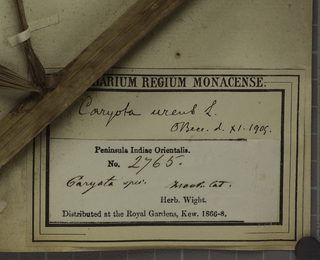 HERBARIUM REGIUM MONACENSE.
Caryota urens L.
O Becc. d. XI. 1905.
Peninsula Indiae Orientalis.
No. 2765.
Caryota spec.
Herb. Wight.
Distributed at the Royal Gardens, Kew. 1866-8.